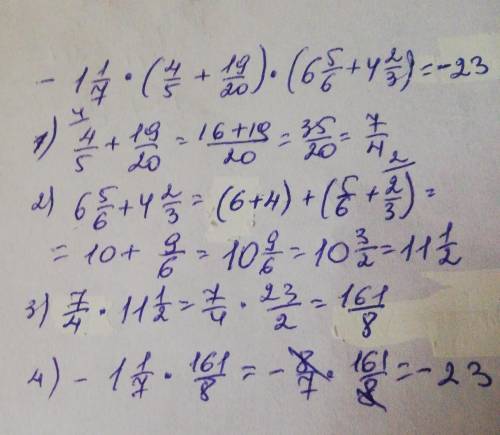 - 1 1/7 · (4/5 + 19/20) · (6 5/6 + 4 2/3) = -23
1) 4/5 (4 + 19/20 = (16+19)/20 = 35/20 = 7/4
2) 6 5/6 + 4 2/3 = (6+4) + (5/6 + 2/3 (2) =
= 10 + 9/6 = 10 9/6 = 10 3/2 = 11 1/2
3) 7/4 · 11 1/2 = 7/4 · 23/2 = 161/8
4) - 1 1/7 · 161/8 = - 8/7 · 161/8 = - 23